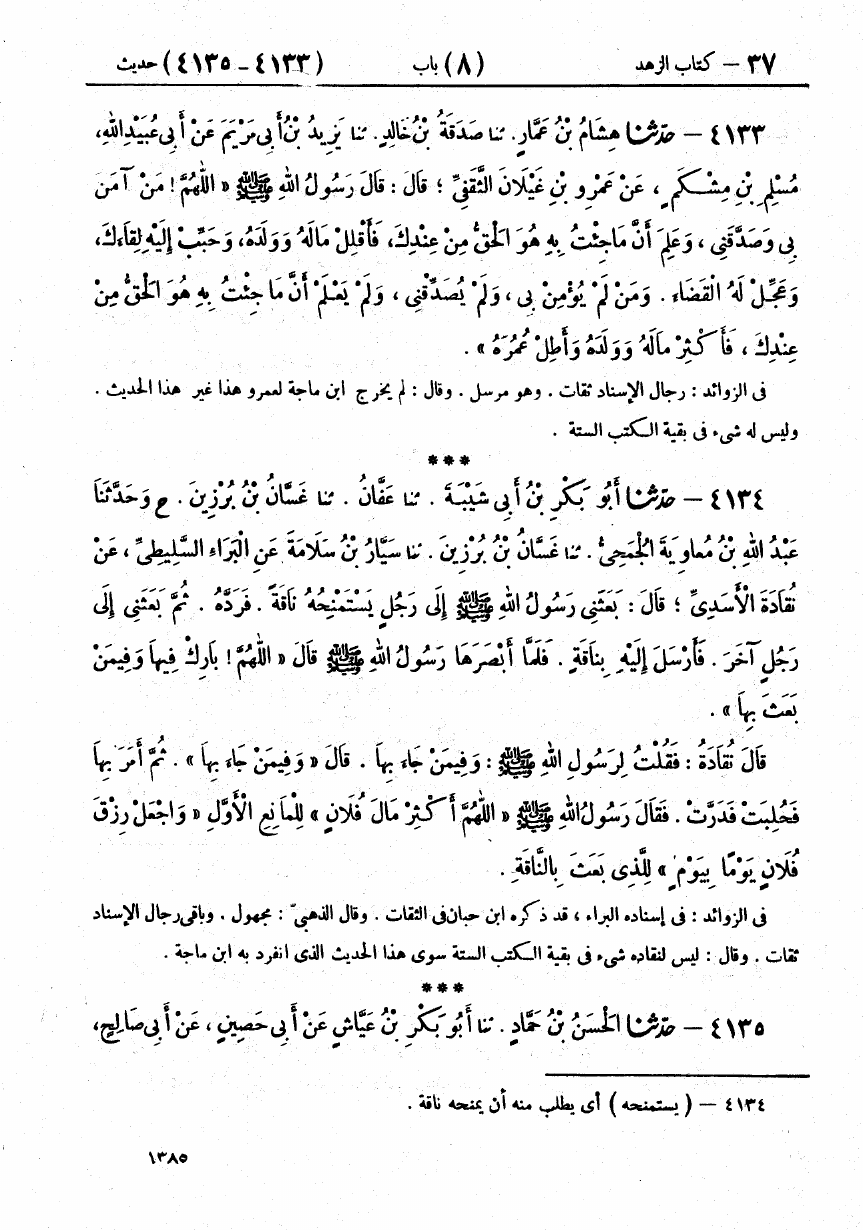 ٣٧ – كتاب الزهد (٨) باب (٤١٣٣ – ٤١٣٥) حديث
٤١٣٣ – حدّثنا هِشَامُ بْنُ عَمَّارٍ. ثنا صَدَقَةُ بْنُ خَالِدٍ. ثنا يَزِيدُ بْنُ أَبِي مَرْيَمَ عَنْ أَبِي عُبَيْدِ اللهِ،
مُسْلِمِ بْنِ مِشْكَمٍ، عَنْ عَمْرِو بْنِ غَيْلَانَ الثَّقَفِيِّ ؛ قَالَ : قَالَ رَسُولُ اللهِ ﷺ « اللّٰهُمَّ ! مَنْ آمَنَ
بِي وَصَدَّقَنِي ، وَعَلِمَ أَنَّ مَاجِئْتُ بِهِ هُوَ الْحَقُّ مِنْ عِنْدِكَ، فَأَقْلِلْ مَالَهُ وَوَلَدَهُ، وَحَبِّبْ إِلَيْهِ لِقَاءَكَ،
وَعَجِّلْ لَهُ الْقَضَاءَ . وَمَنْ لَمْ يُؤْمِنْ بِي ، وَلَمْ يُصَدِّقْنِي ، وَلَمْ يَعْلَمْ أَنَّ مَا جِئْتُ بِهِ هُوَ الْحَقُّ مِنْ
عِنْدِكَ ، فَأَكْثِرْ مَالَهُ وَوَلَدَهُ وَأَطِلْ عُمُرَهُ » .
فى الزوائد : رجال الإسناد ثقات . وهو مرسل . وقال : لم يخرج ابن ماجة لعمرو هذا غير هذا الحديث .
وليس له شىء فى بقية الكتب الستة .
***
٤١٣٤ – حدّثنا أَبُو بَكْرِ بْنُ أَبِي شَيْبَةَ . ثنا عَفَّانُ . ثنا غَسَّانُ بْنُ بُرْزِينَ . ح وَحَدَّثَنَا
عَبْدُ اللهِ بْنُ مُعَاوِيَةَ الْجُمَحِيُّ . ثنا غَسَّانُ بْنُ بُرْزِينَ . ثنا سَيَّارُ بْنُ سَلَامَةَ عَنِ الْبَرَاءِ السَّلِيطِيِّ ، عَنْ
نُقَادَةَ الْأَسَدِيِّ ؛ قَالَ : بَعَثَنِي رَسُولُ اللهِ ﷺ إِلَى رَجُلٍ يَسْتَمْنِحُهُ نَاقَةً . فَرَدَّهُ . ثُمَّ بَعَثَنِي إِلَى
رَجُلٍ آخَرَ . فَأَرْسَلَ إِلَيْهِ بِنَاقَةٍ . فَلَمَّا أَبْصَرَهَا رَسُولُ اللهِ ﷺ قَالَ « اللّٰهُمَّ ! بَارِكْ فِيهَا وَفِيمَنْ
بَعَثَ بِهَا » .
قَالَ نُقَادَةُ : فَقُلْتُ لِرَسُولِ اللهِ ﷺ : وَفِيمَنْ جَاءَ بِهَا . قَالَ « وَفِيمَنْ جَاءَ بِهَا » . ثُمَّ أَمَرَ بِهَا
فَحُلِبَتْ فَدَرَّتْ . فَقَالَ رَسُولُ اللهِ ﷺ « اللّٰهُمَّ أَكْثِرْ مَالَ فُلَانٍ » لِلْمَانِعِ الْأَوَّلِ « وَاجْعَلْ رِزْقَ
فُلَانٍ يَوْمًا بِيَوْمٍ » لِلَّذِي بَعَثَ بِالنَّاقَةِ .
فى الزوائد : فى إسناده البراء ، قد ذكره ابن حبان فى الثقات . وقال الذهبىّ : مجهول . وباقى رجال الإسناد
ثقات . وقال : ليس لنقاده شىء فى بقية الكتب الستة سوى هذا الحديث الذى انفرد به ابن ماجة .
***
٤١٣٥ – حدّثنا الْحَسَنُ بْنُ حَمَّادٍ . ثنا أَبُو بَكْرِ بْنُ عَيَّاشٍ عَنْ أَبِي حَصِينٍ ، عَنْ أَبِي صَالِحٍ،
٤١٣٤ – ( يستمنحه ) أى يطلب منه أن يمنحه ناقة .
١٣٨٥